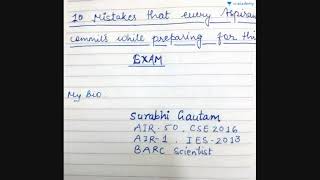 unacademy
10 Mistakes that every Aspiran
commits while preparing for thi
EXAM
My Bio
Surabhi Gautam
AIR-50, CSE 2016
AIR-1, IES-2013
BARC Scientist